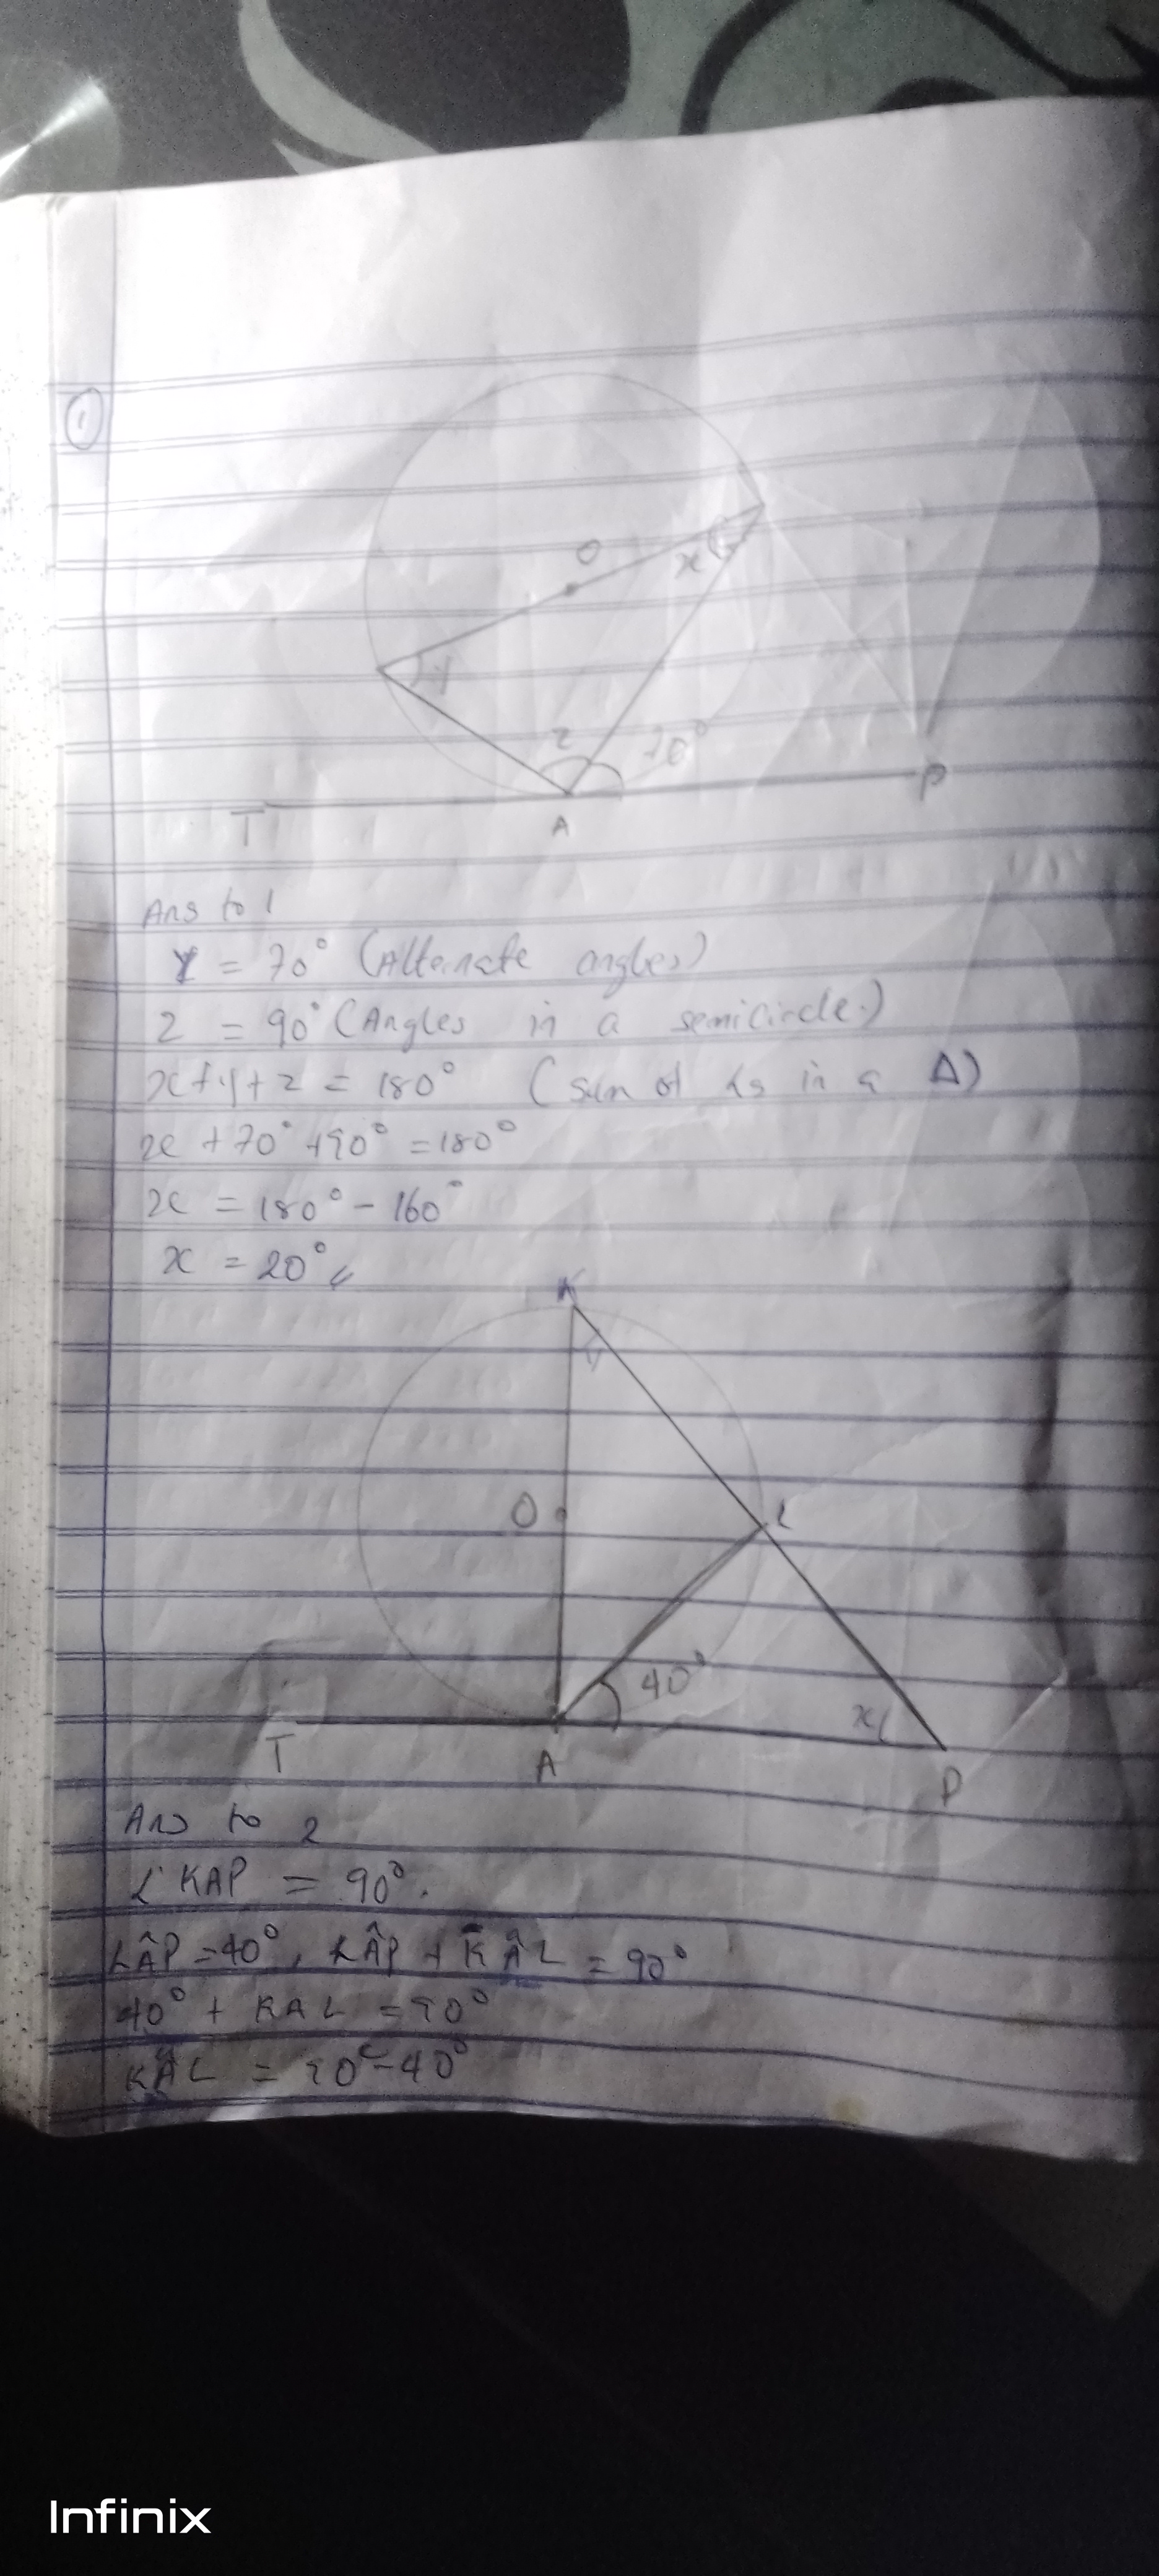 1
O
x
y
z 70°
T A P
Ans to 1
Y = 70° (Alternate angles)
Z = 90° (Angles in a semicircle.)
x+y+z = 180° (sum of ∠s in a Δ)
x + 70° + 90° = 180°
x = 180° - 160°
x = 20°
K
y
O L
40°
x
T A P
Ans to 2
∠KAP = 90°.
LÂP = 40°, LÂP + KÂL = 90°
40° + KAL = 90°
KÂL = 90° - 40°
Infinix